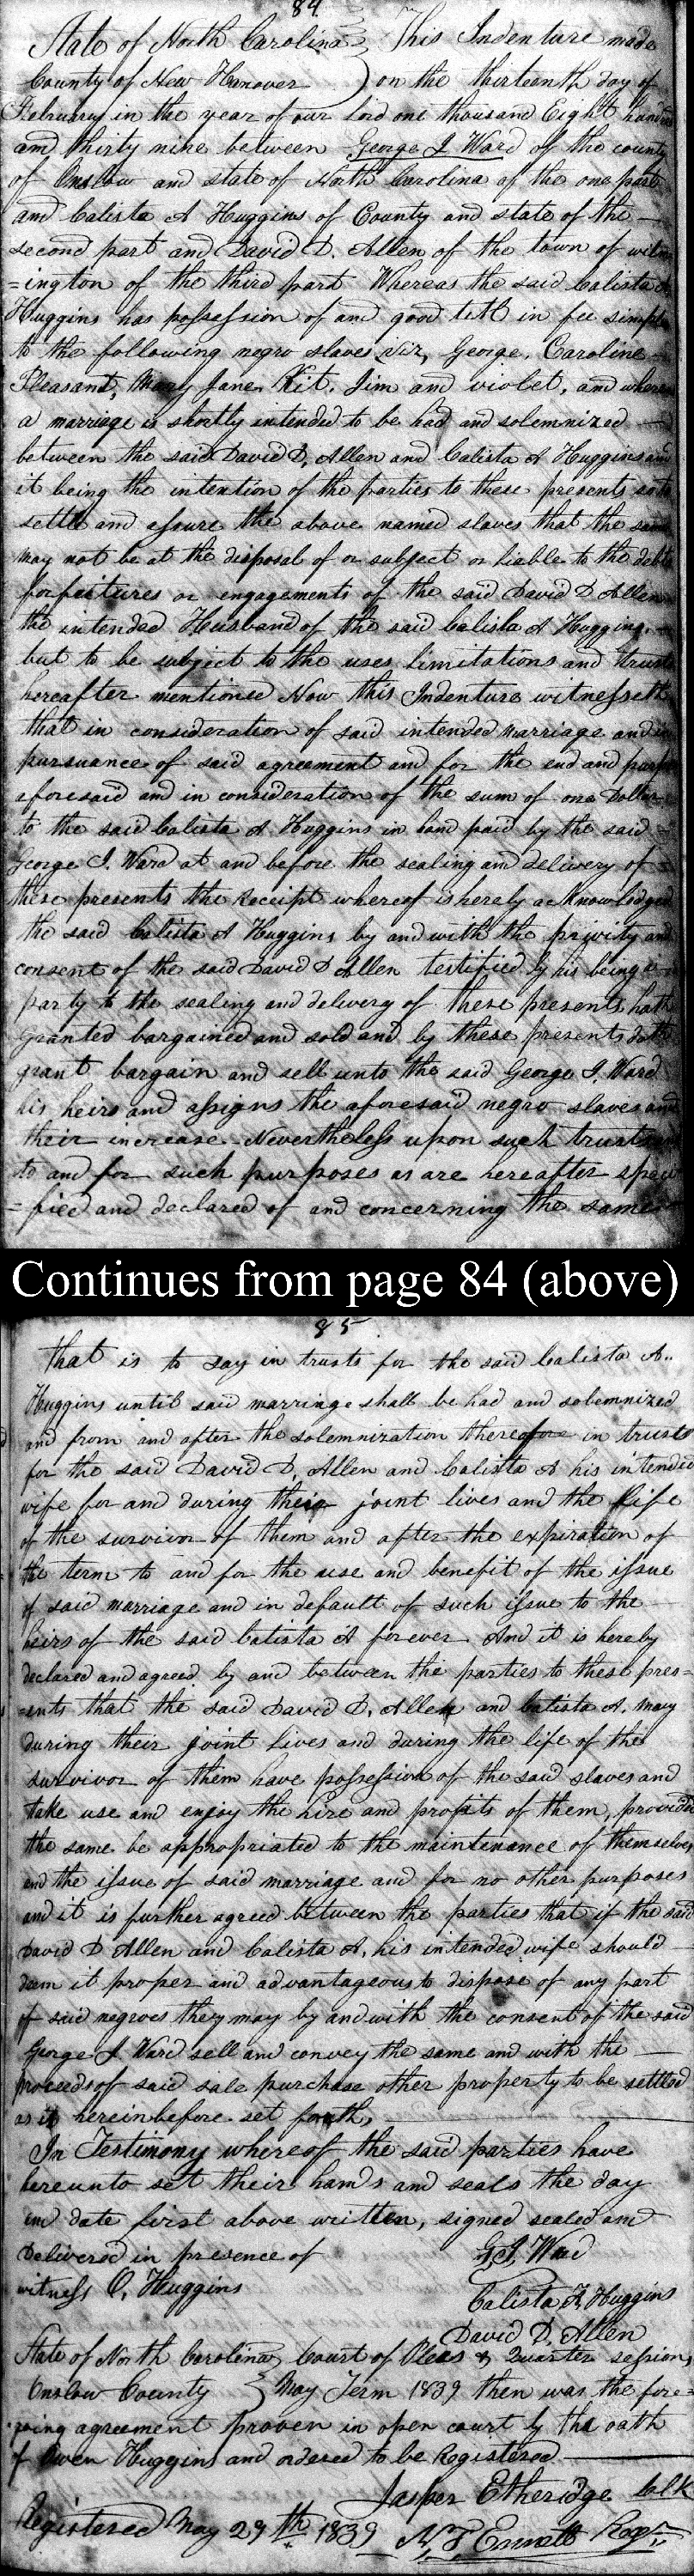 84
State of North Carolina } This Indenture made
County of New Hanover ) on the thirteenth day of
February in the year of our Lord one thousand Eight hund
and thirty nine between George J Ward of the county
of Onslow and state of North Carolina of the one part
and Calista A Huggins of County and state of the —
second part and David D. Allen of the town of wilm
=ington of the third part Whereas the said Calista A
Huggins has possession of and good titl in fee simple
to the following negro slaves viz, George, Caroline
Pleasant, Mary Jane Kit. Jim and violet, and where
a marriage is shortly intended to be had and solemnized —
between the said David D, Allen and Calista A Huggins and
it being the intention of the parties to these presents so to
settle and assure the above named slaves that the same
may not be at the disposal of or subject or liable to the debts
forfeitures or engagements of the said David D Allen
the intended Husband of the said Calista A Huggins. —
but to be subject to the uses limitations and trusts
hereafter mentioned Now this Indenture witnesseth
that in consideration of said intended marriage and in
pursuance of said agreement and for the end and purpo
aforesaid and in consideration of the sum of one Dollar
to the said Calista A Huggins in hand paid by the said =
George J. Ward at and before the sealing and delivery of =
these presents the Receipt whereof is hereby acknowledged
the said Calista A Huggins by and with the privity and
consent of the said David D Allen testified by his being a
party to the sealing and delivery of these presents hath
granted bargained and sold and by these presents doth
grant bargain and sell unto the said George J. Ward
his heirs and assigns the aforesaid negro slaves and
their increase. Nevertheless upon such trusts and
to and for such purposes as are hereafter speci
=fied and declared of and concerning the same
Continues from page 84 (above)
85
that is to say in trusts for the said Calista A..
Huggins until said marriage shall be had and solemnized
and from and after the solemnization thereof in trusts
for the said David D, Allen and Calista A his intended
wife for and during their joint lives and the life
of the survivor of them and after the expiration of
the term to and for the use and benefit of the issue
of said marriage and in default of such issue to the —
heirs of the said Calista A forever And it is hereby
declared and agreed by and between the parties to these pres=
=ents that the said David D, Allen and Calista A. may
during their joint lives and during the life of the
survivor of them have possession of the said slaves and
take use and enjoy the hire and profits of them, provided
the same be appropriated to the maintenance of themselves
and the issue of said marriage and for no other purposes
and it is further agreed between the parties that if the said
David D Allen and Calista A, his intended wife should —
deem it proper and advantageous to dispose of any part
of said negroes they may by and with the consent of the said
George J Ward sell and convey the same and with the —
proceeds of said sale purchase other property to be settled
as is herein before set forth,
In Testimony whereof the said parties have
hereunto set their hands and seals the day
and date first above written, signed sealed and
Delivered in presence of G, J, Ward
witness O, Huggins Calista A, Huggins
David D, Allen
State of North Carolina } Court of Pleas & Quarter sessions
Onslow County } May Term 1839 then was the fore=
going agreement proven in open court by the oath
of Owen Huggins and ordered to be Registered —
Jasper Etheridge Clk
Registered May 29th 1839 Regr